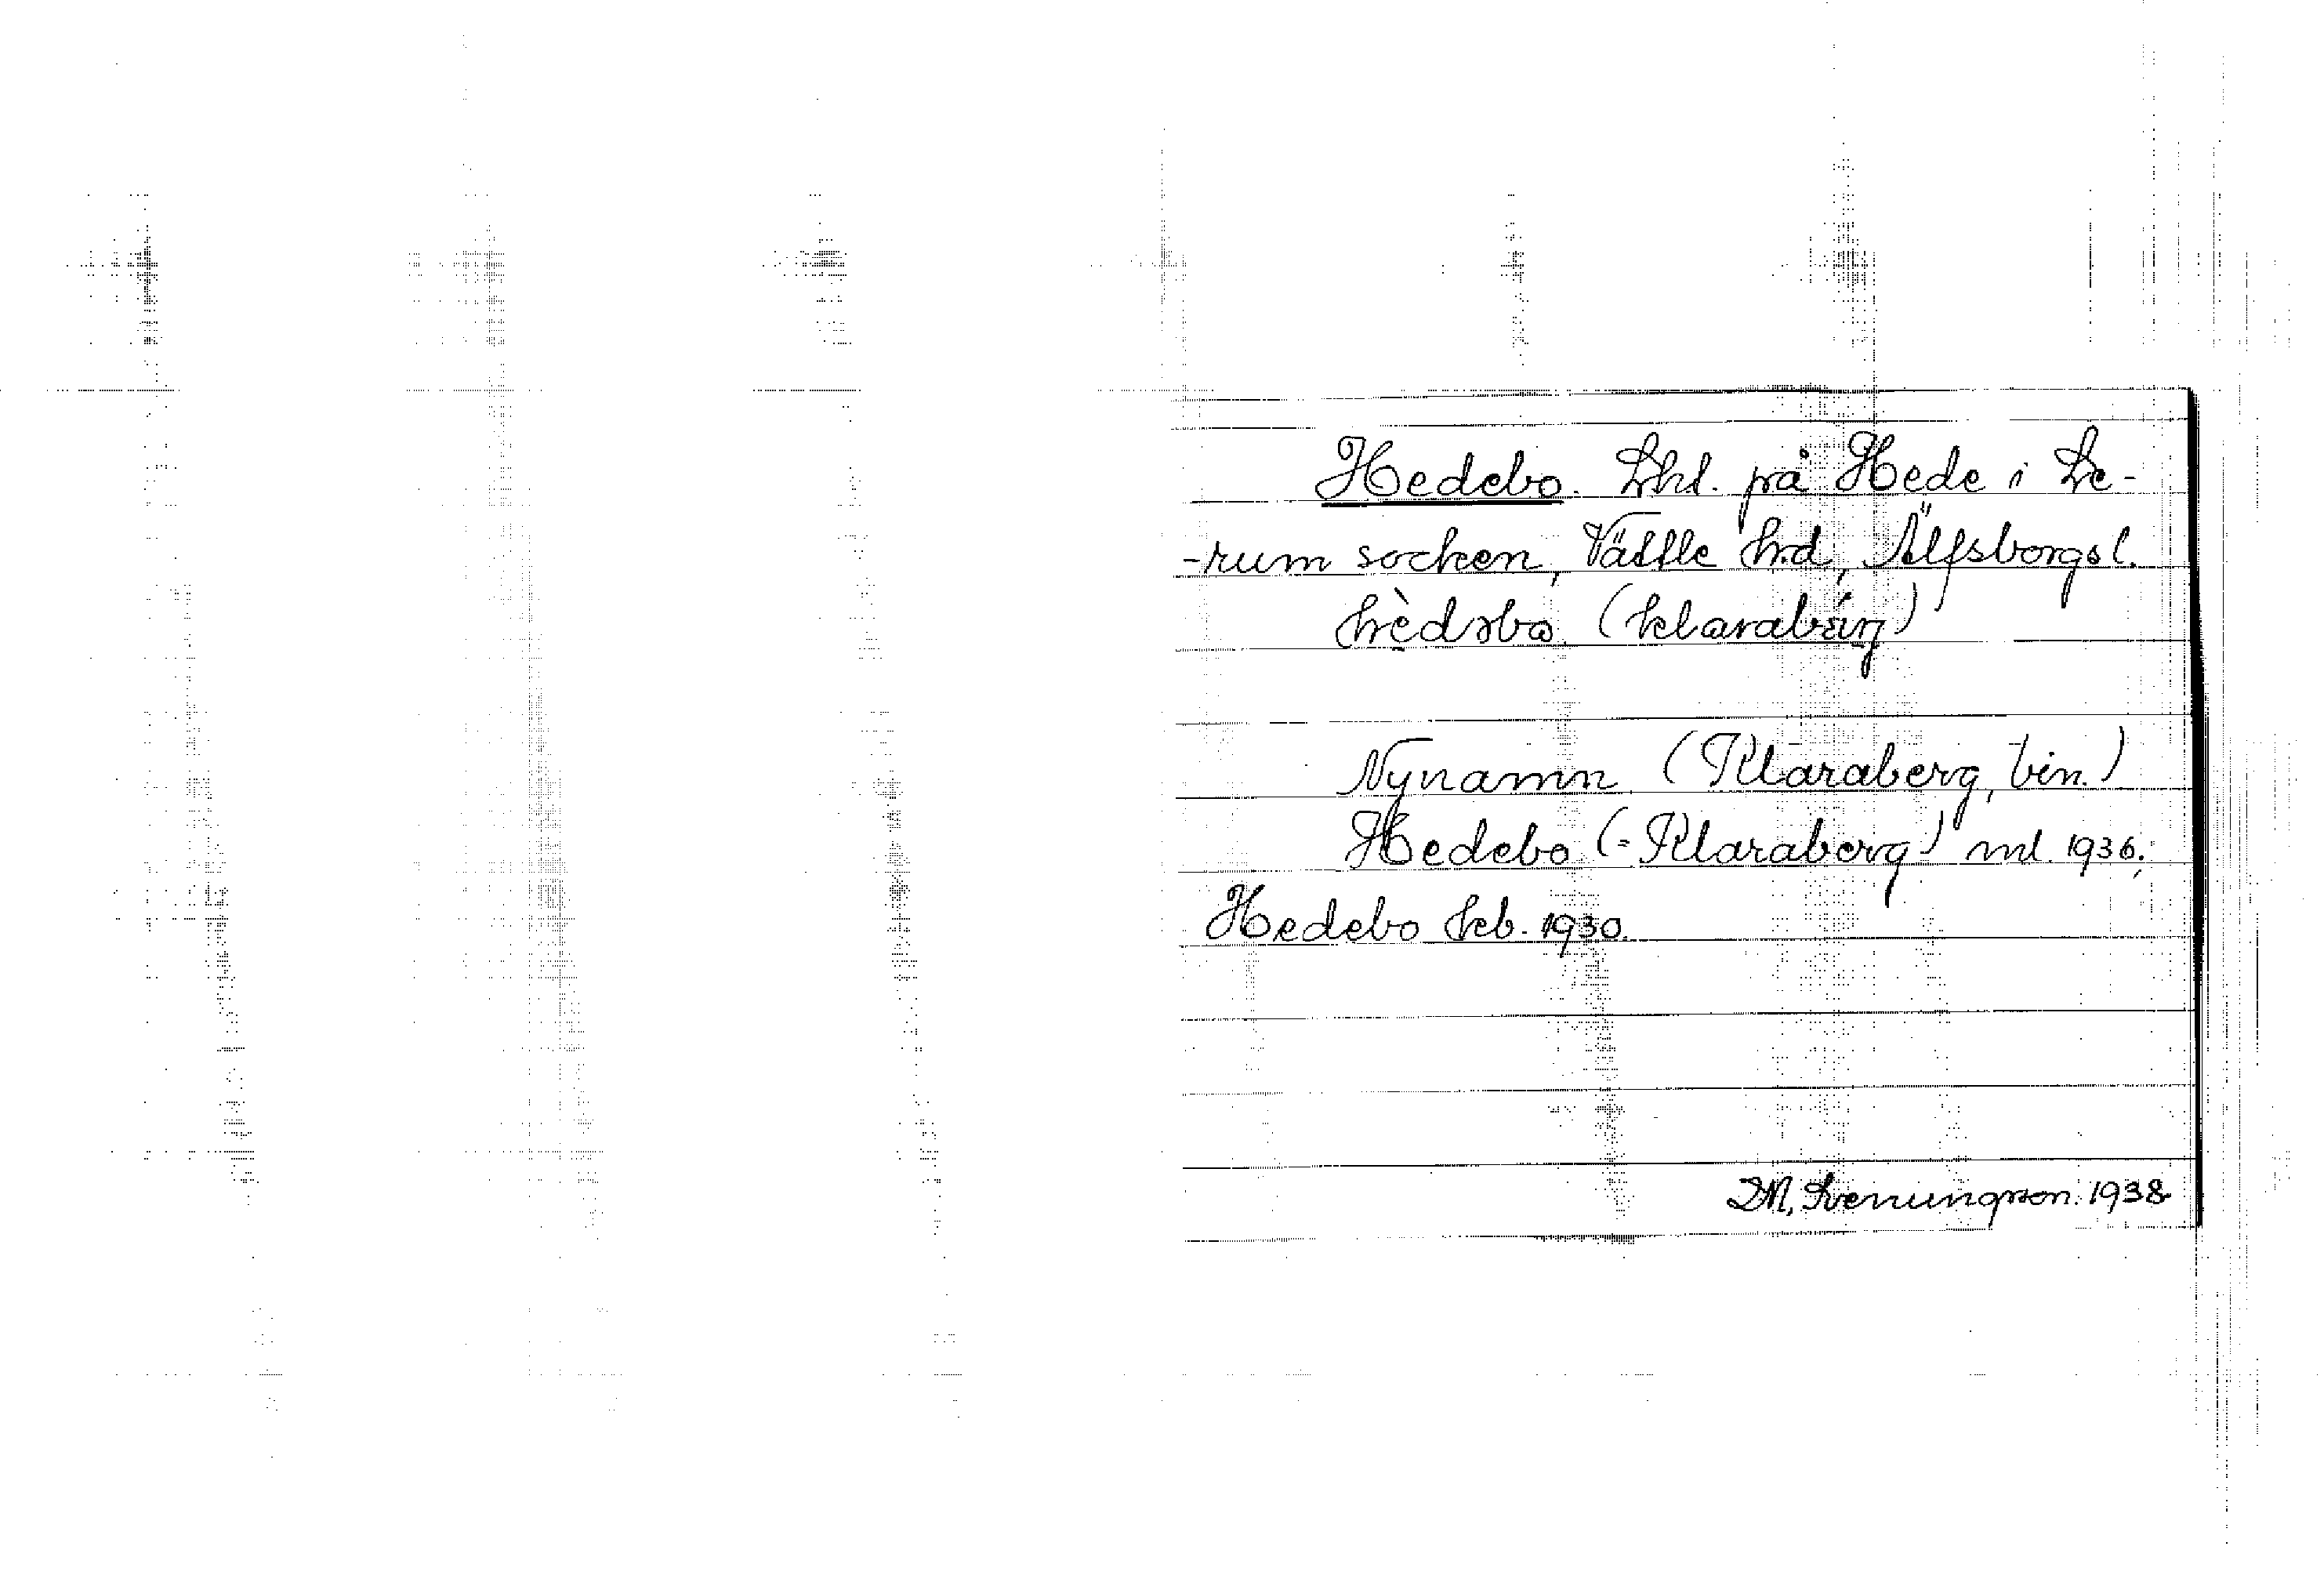 Hedebo. Lht. på Hede i Le-
-rum socken, Vättle hrd, Älfsborgs l.
hèdəbo (klarabárj)
Nynamn (Klaraberg, bin.)
Hedebo (=Klaraberg) ml. 1936.
Hedebo kb. 1930.
D.M. Svenungson. 1938